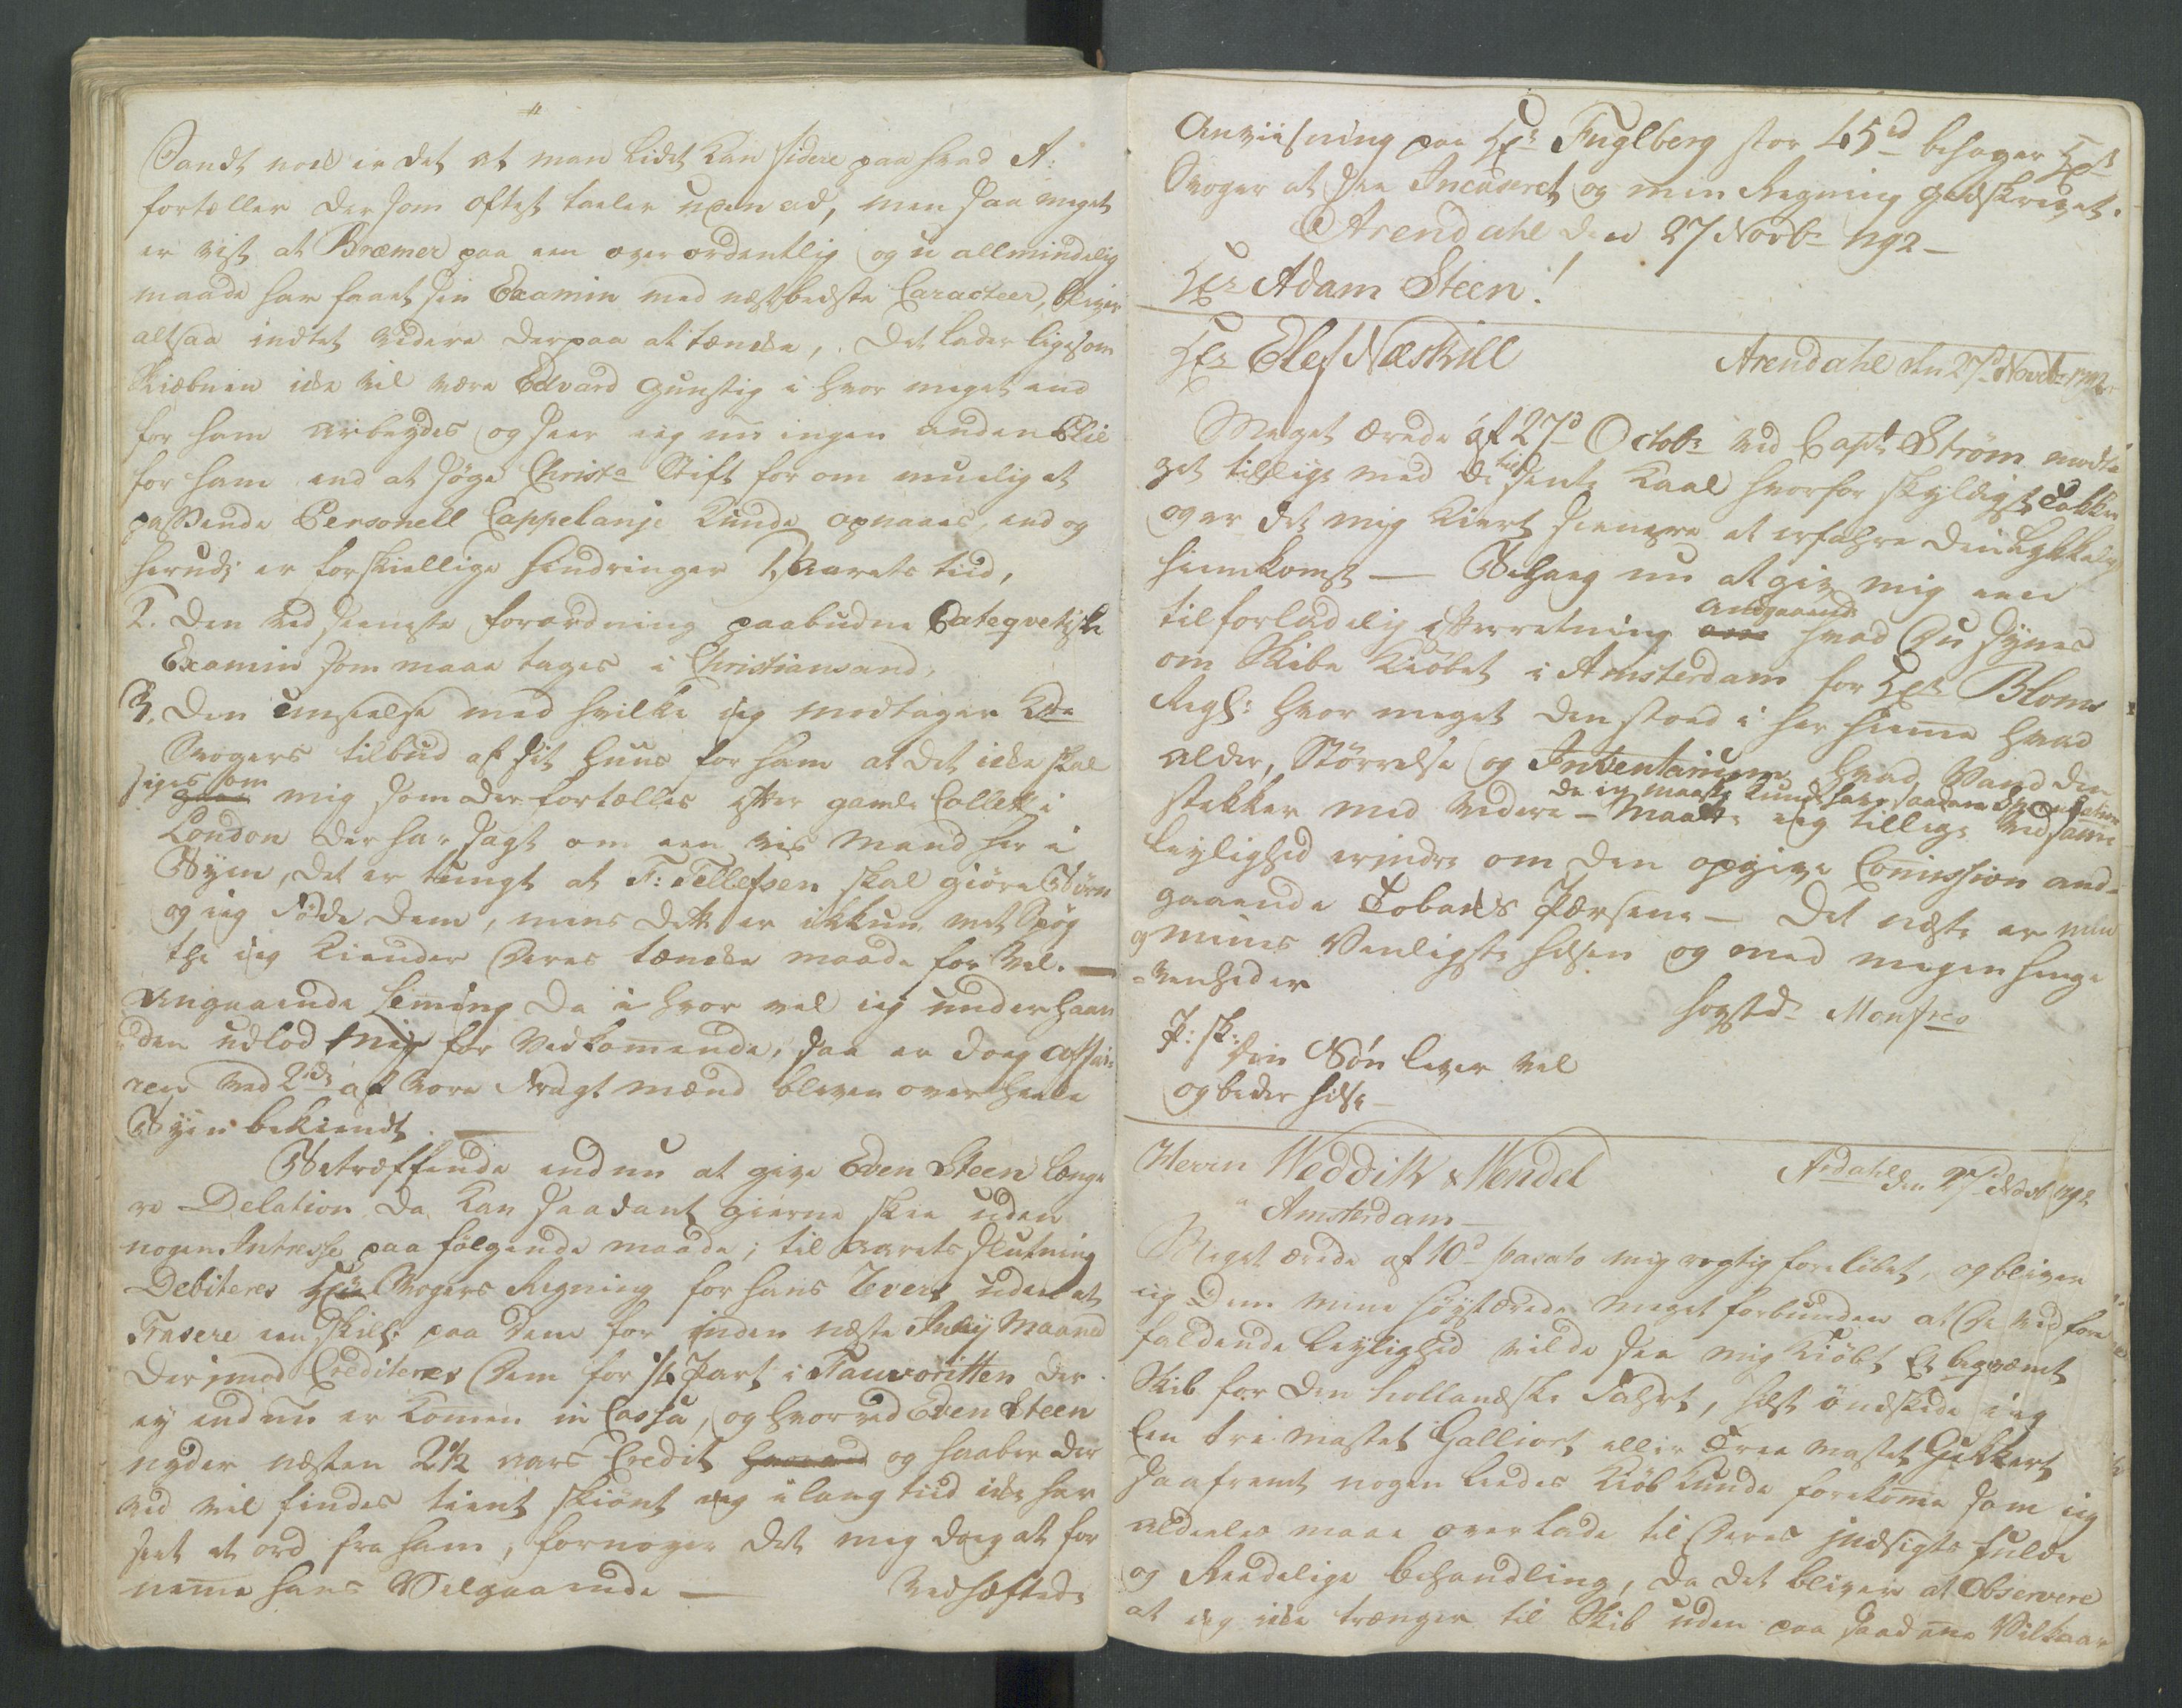 Sandt nok er det at man lidet kan sidere paa hvad A:
fortæller der som oftest taler uxen ad, men saa meget
er vist at Bræmer paa een over ordentlig og u allmindelig
maade har faaet sin Examin med næstbedste Caracteer, bliver
altsaa indtet videre derpaa at tæncke, det lader ligesom
Skiæbnen icke vil være Edvard gunstig i hvor meget end
for ham arbeydes og seer ieg nu ingen anden
for ham end at søge Christa Stift for om muelig et
passende Personell Cappelanje kunde opnaaes, end og
herudj er forskiellige hindringer 1, Aarets tiid,
2. den ved seeneste forordning paabudne Categvetiske
Examin som maae tages i Christiansand,
3. den med hvilke ieg modtager Kde
Svogers tilbud af sit huus for ham at det icke skal
siges om mig som der fortælles efter gamle Collett i
London der har sagt om een vis Mand her i
Byen, det er tungt at F: Tellefsen skal giøre Børn
og ieg føde dem, mens dette er ikkun met Spøg
thi ieg kiender Deres tæncke maade for vel. —
Angaaende Leming da i hvor vel ieg under haan
den udlod mig for Vedkomende, saa er dog affai-
ren ved 2de af vore Fragt mænd bleven over heele
Byen bekiendt. —
Betræffende endnu at give Even Steen længe
re Delation da kan saadant gierne skee uden
nogen Intresse paa følgende maade; til Aarets slutning
Debiteres Svogers Regning for hans Tvert uden at
Trasere een skill: paa dem for inden næste July Maaned
derimod Crediteres Dem for Part i Fauvoritten der
ey endnu er komen in Cassa, og hvorved Even Steen
nyder næsten 2 1/2 aars Credit hvorved og haaber der
ved vil findes tient skiønt ieg i lang tiid icke har
seet et ord fra ham, fornøyer det mig dog at for
neme hans Velgaaende — Vedhæftede
Anviisning paa Hr Fuglberg stor 45rd behager Hr
Svoger at see Incaseret og min Regning godskrevet.
Arendahl den 27 Novbr 1792 —
Hr Adam Steen!
Hr Elef Næskill Arendahl den 27d Novbr 1792
Meget ærede af 27d Octobr ved Capt Strøm modta
get tillige med de til sente Kaal hvorfor skyldigst takker
og er det mig kiert seenere at erfahre din lykkelig
hiemkomst — Behag nu at giv mig een
tilforladelig efterretning om Andgaaende hvad Du synes
om Skibe kiøbet i Amsterdam for Hr Bloms
Regl: hvor meget den stoed i her hieme hvad
alder, Størrelse og Inventarium, hvad Vand den
da ieg maaske kunde have saadan Speculation
stikker med videre — Maatte ieg tillige ved same
leylighed erindre om den opgive Comission and-
gaaende Tobaks Pærsene — Det næste er min
og mines Venligste hilsen og med megen henge
-venhed er
hogstd Monfreo
P: sk: din Søn lever vel
og beder hilse —
Herrn Weddik & Wendel Ardahl den 27 Novbr 1792
a Amsterdam —
Meget ærede af 10d pasato mig rogtig foreløbet, og bliver
ieg dem mine høystærede meget forbunden at De ved fore
faldende leylighed vilde see mig kiøbt Et beqvæmt
Skib for den hollandske Fahrt, helst ønskede ieg
Een tre mastet Galliot, eller Tree mastet Hukkert
saafremt nogen leedes kiøb kunde forekome som ieg
aldeeles maae overlade til Deres indsigts fulde
og Reedelige behandling, da det bliver at Observere
at ieg icke trænger til Skib uden paa saadanne Vilkaar